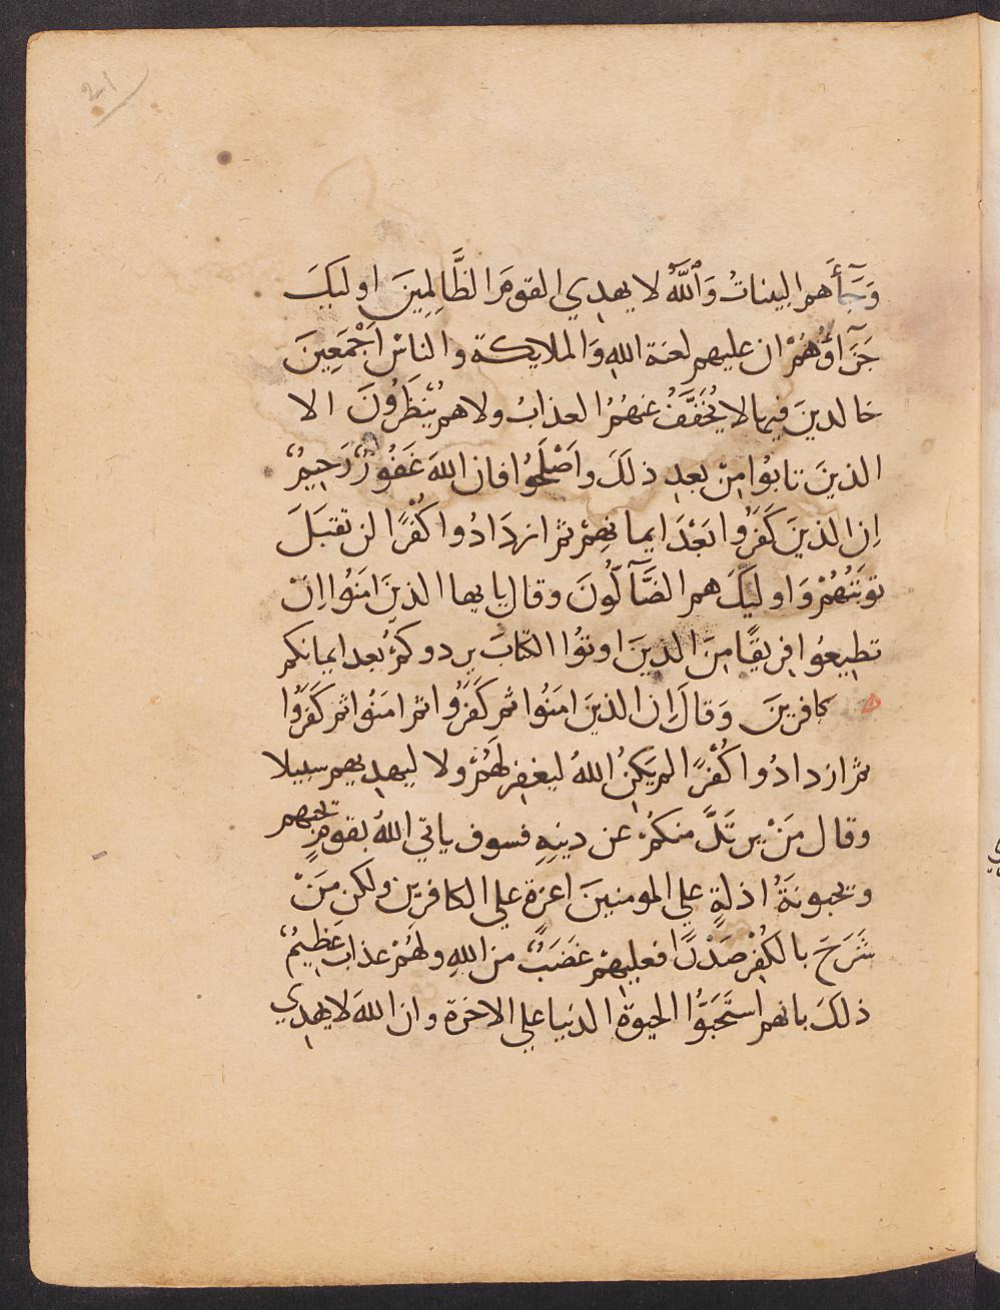 وَجَآءَهم البيناتُ وَٱللَّهُ لا يهدِي القومَ الظَّالِمِينَ اوليكَ
جَزَآؤُهُمْ ان عليهم لعنة اللهِ وَالملايكة والناسْ اَجْمَعِينَ
خالدينَ فيها لا يُخَفَّفُ عنهُمُ العذابُ ولا هم يُنظَرُونَ الا
الذينَ تابوُا مِنْ بعدِ ذلكَ واَصْلَحُوا فان اللهَ غَفُورٌ رَحِيمٌ
اِن الذينَ كَفَرُوا بَعْدَ ايمانِهِمْ ثم ازدَادُوا كُفْرًا لن تقبَلَ
توبَتُهُمْ وَاوليكَ هم الضَّآلُّونَ وقال يا يها الذينَ امَنُوا اِنْ
تطِيعُوا فِريقًا مِنَ الذينَ اوتوُا الكتابَ يردوكمُ بعد ايمانكم
كافرينَ وَقالَ اِن الذينَ امَنُوا ثم كَفَرُوا ثم امَنُوا ثم كَفَرُوا
ثم ازدادُوا كُفْرًا لم يَكنِ اللهُ ليغفِر لَهُمْ ولا ليهدِيهم سبيلا
وقال مَنْ يرتَدَّ منكمُ عن دينِهِ فسوف ياتي اللهُ بقومٍ يحبهم
ويحبونَهُ اذلةٍ علي المومنينَ اعزةٍ علي الكافرِين ولكن مَنْ
شَرَحَ بالكُفِرْ صَدْرًا فعليهِمْ غَضَبٌ من اللهِ ولهُمْ عذاب عَظِيمٌ
ذلكَ بانهم استَحَبوُّا الحيوةَ الدنيا علي الاخرة وان اللهَ لا يهدِي